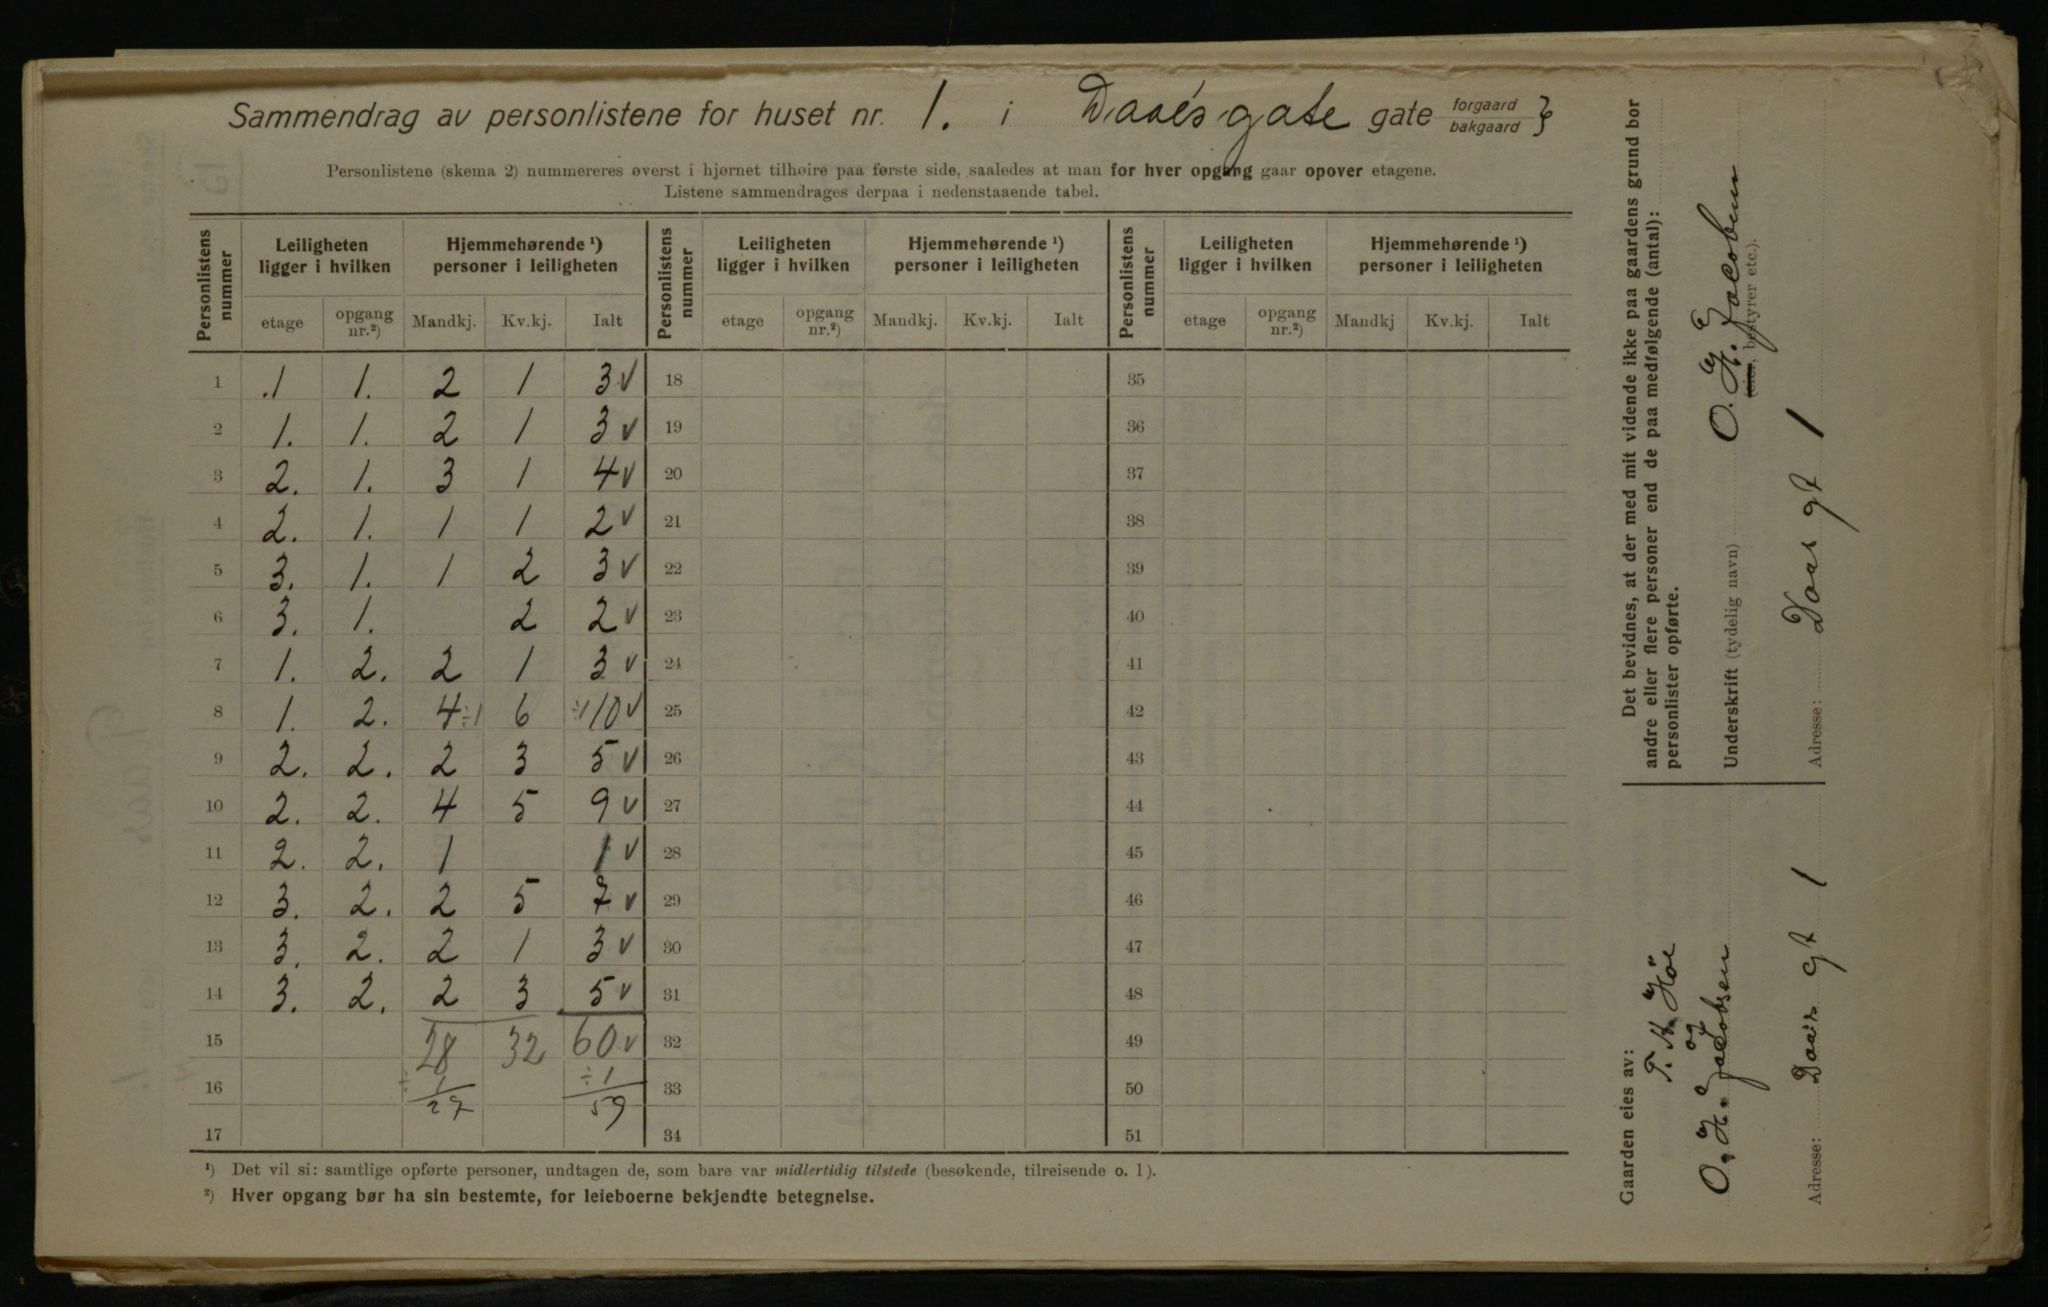 Sammendrag av personlistene for huset nr. 1. i Daaes gate gate forgaard bakgaard }
Personlistene (skema 2) nummereres øverst i hjørnet tilhøire paa første side, saaledes at man for hver opgang gaar opover etagene.
Listene sammendrages derpaa i nedenstaaende tabel.
Personlistens nummer | Leiligheten ligger i hvilken | Hjemmehørende ¹) personer i leiligheten | Personlistens nummer | Leiligheten ligger i hvilken | Hjemmehørende ¹) personer i leiligheten | Personlistens nummer | Leiligheten ligger i hvilken | Hjemmehørende ¹) personer i leiligheten
etage | opgang nr.²) | Mandkj. | Kv.kj. | Ialt | etage | opgang nr.²) | Mandkj. | Kv.kj. | Ialt | etage | opgang nr.²) | Mandkj | Kv.kj. | Ialt
1 .1 1. 2 1 3 v 18 35
2 1. 1. 2 1 3 v 19 36
3 2. 1. 3 1 4 v 20 37
4 2. 1. 1 1 2 v 21 38
5 3. 1. 1 2 3 v 22 39
6 3. 1. 2 2 v 23 40
7 1. 2. 2 1 3 v 24 41
8 1. 2. 4 ÷1 6 ÷1 10 v 25 42
9 2. 2. 2 3 5 v 26 43
10 2. 2. 4 5 9 v 27 44
11 2. 2. 1 1 v 28 45
12 3. 2. 2 5 7 v 29 46
13 3. 2. 2 1 3 v 30 47
14 3. 2. 2 3 5 v 31 48
15 28 32 60 v 32 49
16 ÷ 1 ÷ 1 33 50
27 59
17 34 51
¹) Det vil si: samtlige opførte personer, undtagen de, som bare var midlertidig tilstede (besøkende, tilreisende o. l).
²) Hver opgang bør ha sin bestemte, for leieboerne bekjendte betegnelse.
Det bevidnes, at der med mit vidende ikke paa gaardens grund bor
andre eller flere personer end de paa medfølgende (antal):
personlister opførte.
Underskrift (tydelig navn) O. H. Jacobsen
(eier, bestyrer etc.).
Adresse: Daaes gt 1
Gaarden eies av:
T. H. Höe
og
O. H. Jacobsen
Adresse: Daaes gt 1